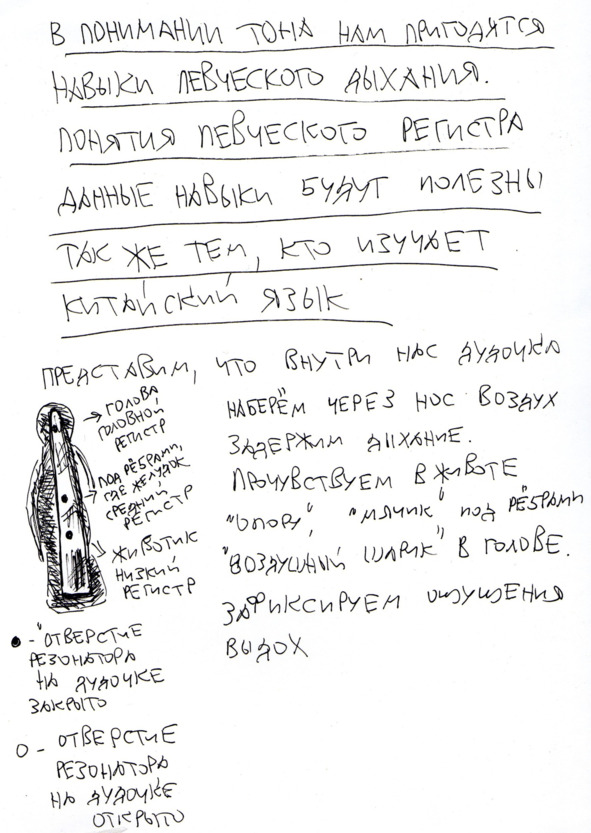 В ПОНИМАНИИ ТОНА НАМ ПРИГОДЯТСЯ
НАВЫКИ ПЕВЧЕСКОГО ДЫХАНИЯ.
ПОНЯТИЯ ПЕВЧЕСКОГО РЕГИСТРА
ДАННЫЕ НАВЫКИ БУДУТ ПОЛЕЗНЫ
ТАК ЖЕ ТЕМ, КТО ИЗУЧАЕТ
КИТАЙСКИЙ ЯЗЫК
ПРЕДСТАВИМ, ЧТО ВНУТРИ НАС ДУДОЧКА
ГОЛОВА,
ГОЛОВНОЙ
РЕГИСТР
ПОД РЁБРАМИ,
ГДЕ ЖЕЛУДОК
СРЕДНИЙ
РЕГИСТР
ЖИВОТИК
НИЗКИЙ
РЕГИСТР
НАБЕРЁМ ЧЕРЕЗ НОС ВОЗДУХ
ЗАДЕРЖИМ ДЫХАНИЕ.
ПОЧУВСТВУЕМ В ЖИВОТЕ
"ОПОРУ", "МЯЧИК" ПОД РЁБРАМИ
"ВОЗДУШНЫЙ ШАРИК" В ГОЛОВЕ.
ЗАФИКСИРУЕМ ОЩУЩЕНИЯ
ВЫДОХ
- "ОТВЕРСТИЕ
РЕЗОНАТОРА
НА ДУДОЧКЕ
ЗАКРЫТО
- ОТВЕРСТИЕ
РЕЗОНАТОРА
НА ДУДОЧКЕ
ОТКРЫТО